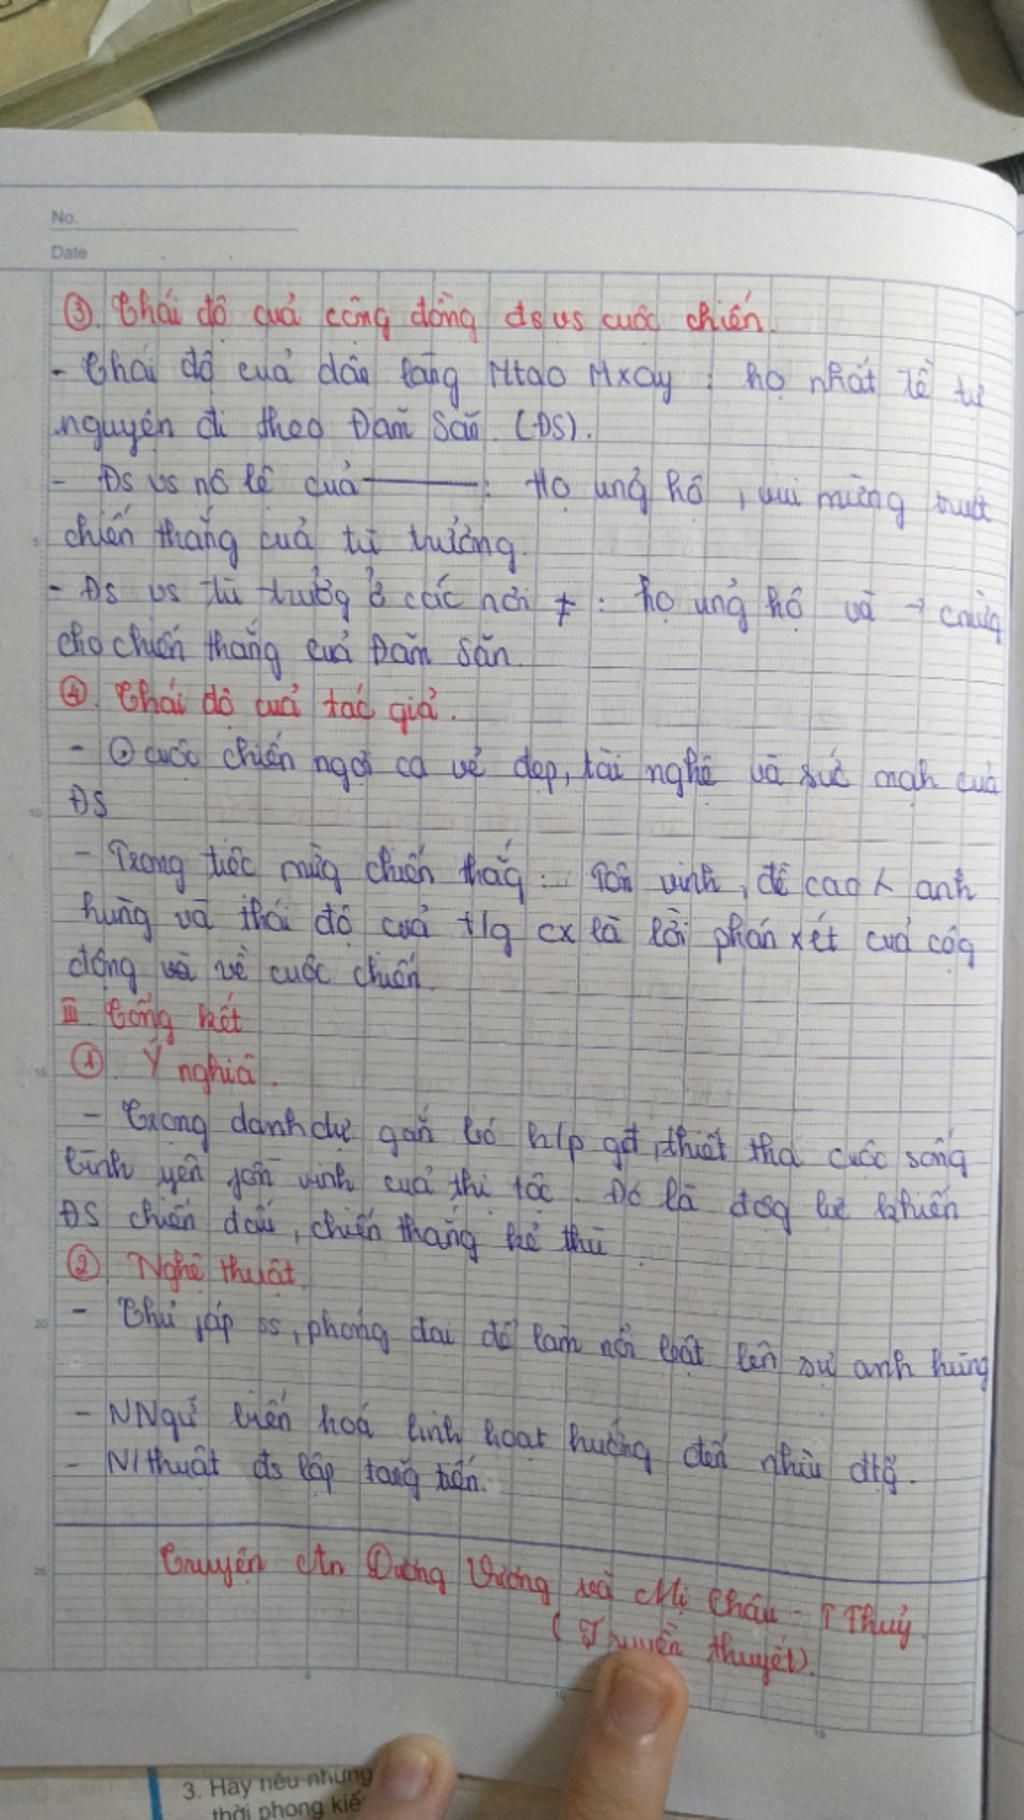 No.
Date
③. Thái độ của cộng đồng đs vs cuộc chiến.
- Thái độ của dân làng Mtao Mxay : họ nhất tề tự
nguyện đi theo Đăm Săn. (ĐS).
- Đs vs nô lệ của ——— : Họ ủng hộ, vui mừng trước
chiến thắng của tù trưởng.
- Đs vs tù trưởg ở các nơi ≠ : họ ủng hộ và → cmừg
cho chiến thắng của Đăm Săn.
④. Thái độ của tác giả.
- ⊙ cuộc chiến ngợi ca vẻ đẹp, tài nghệ và sức mạh của
ĐS
- Trong tiệc mừg chiến thắg : Tôn vinh, đề cao anh
hùng và thái độ của t/g cx là lời phán xét của cộg
đồng về cuộc chiến.
III Tổng kết
① Ý nghĩa.
- Trọng danh dự gắn bó h/p gđ, thiết tha cuộc sống
bình yên fồn vinh của thị tộc. Đó là độg lực khiến
ĐS chiến đấu, chiến thắng kẻ thù
② Nghệ thuật.
- Thủ fáp ss, phóng đại để làm nổi bật lên sự anh hùng
- NNgữ biến hoá linh hoạt hướng đến nhìu đtg.
- N/thuật đs lập tăng tiến.
Truyện An Dương Vương và Mị Châu - T Thuỷ.
( Truyền thuyết).
3. Hãy nêu những
thời phong kiế